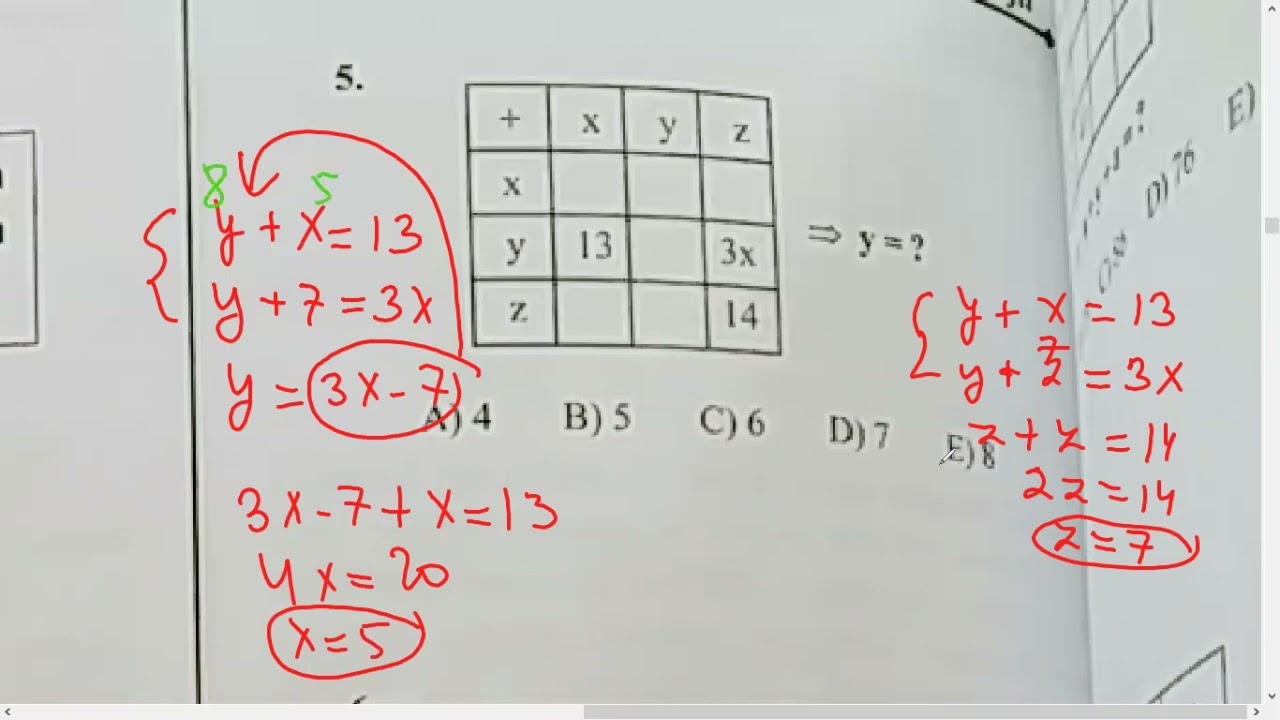 5.
+ x y z
x
y 13 3x
z 14
⇒ y = ?
A) 4 B) 5 C) 6 D) 7 E) 8
8 5
y + x = 13
y + 7 = 3x
y = 3x - 7
3x - 7 + x = 13
4x = 20
x = 5
y + x = 13
7
y + z = 3x
z + z = 14
2z = 14
z = 7
E)
D) 76